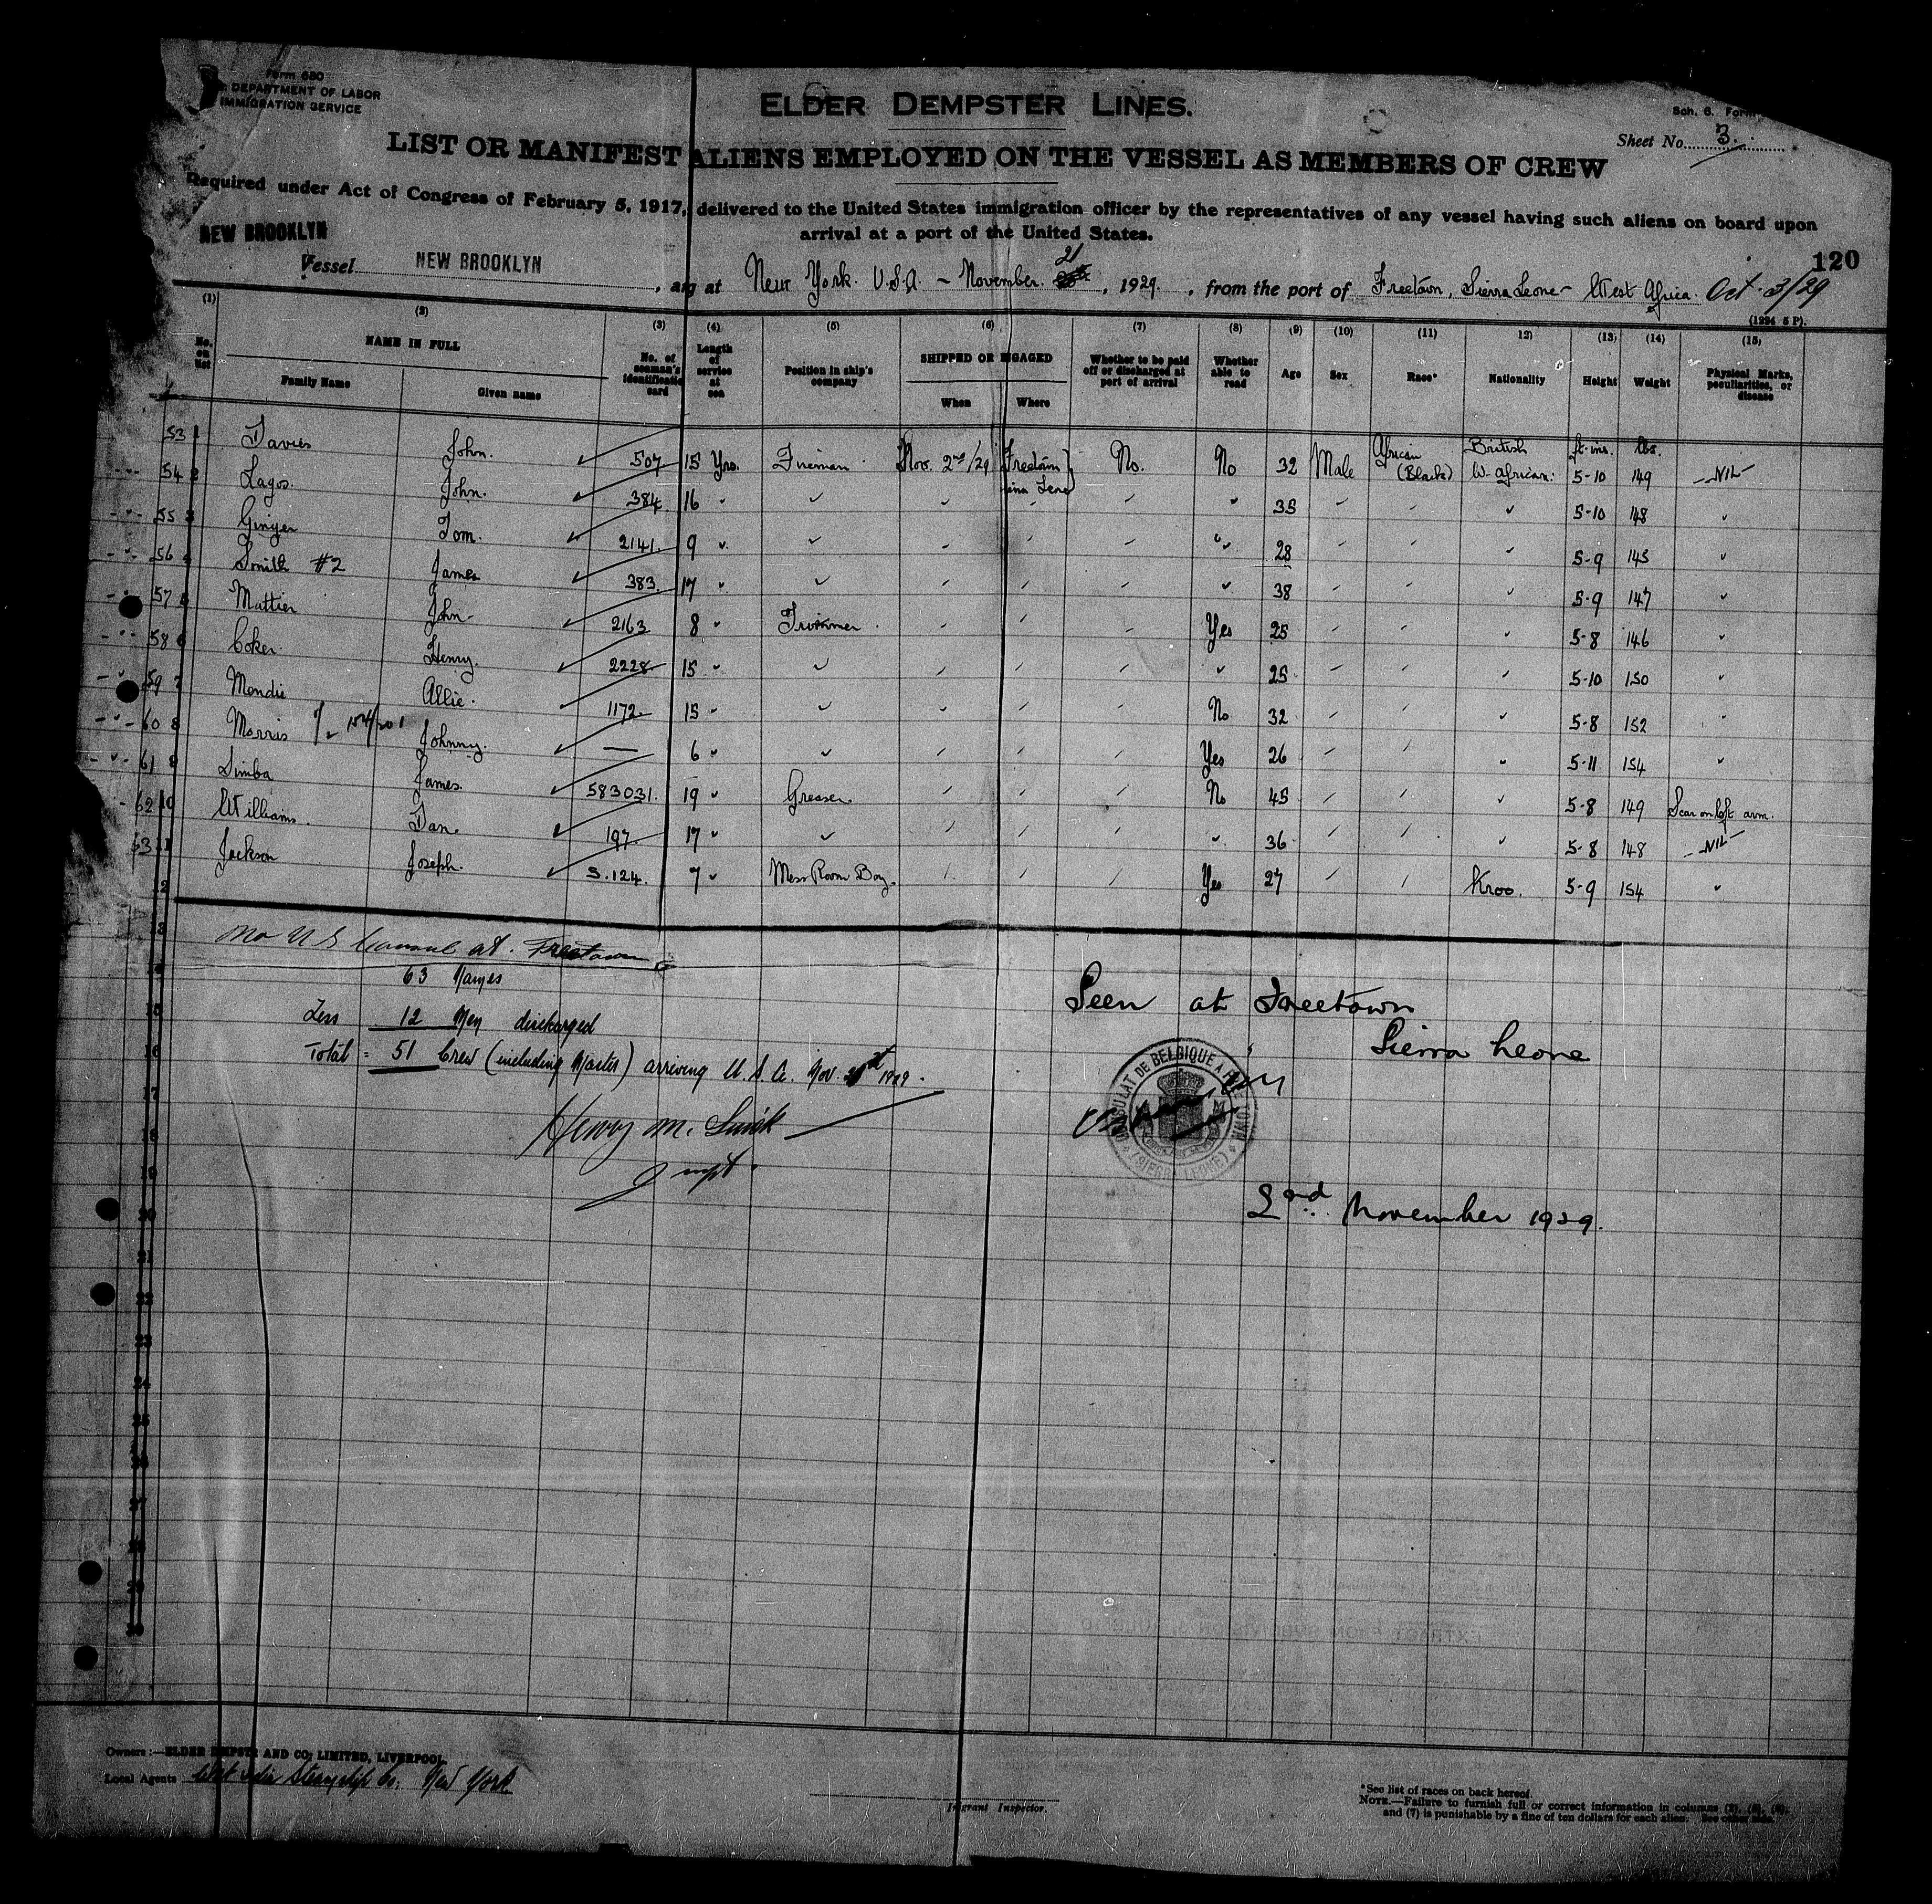 Form 680
DEPARTMENT OF LABOR
IMMIGRATION SERVICE
ELDER DEMPSTER LINES.
Sch. 6. Form
Sheet No. 3.
LIST OR MANIFEST ALIENS EMPLOYED ON THE VESSEL AS MEMBERS OF CREW
Required under Act of Congress of February 5, 1917, delivered to the United States immigration officer by the representatives of any vessel having such aliens on board upon
arrival at a port of the United States.
NEW BROOKLYN
120
Vessel NEW BROOKLYN, at New York. U.S.A. - November. 21, 1929, from the port of Freetown, Sierra Leone - West Africa. Oct. 3/29
(1294 5 P).
(1) (2) (3) (4) (5) (6) (7) (8) (9) (10) (11) 12) (13) (14) (15)
No. on list NAME IN FULL Family Name Given name No. of seaman's identification card Length of service at sea Position in ship's company SHIPPED OR ENGAGED When Where Whether to be paid off or discharged at port of arrival Whether able to read Age Sex Race* Nationality Height Weight Physical Marks, peculiarities, or disease
53 1 Davies John. 507 15 Yrs. Fireman Nov. 2nd/29 Freetown No. No 32 Male African (Black) British W. African. ft-ins. 5-10 lbs. 149 -NIL-
54 2 Lagos. John. 384 16 " 35 5-10 148 "
55 3 Ginger Tom. 2141 9 " 28 5-9 145 "
56 4 Smith #2 James 383. 17 " 38 5-9 147 "
57 5 Mattier John 2163 8 " Trimmer Yes 25 5-8 146 "
58 6 Coker. Henry. 2228 15 " 25 5-10 150 "
59 7 Mendie Allie. 1172. 15 " No 32 5-8 152 "
60 8 Morris Johnny. — 6 " Yes 26 5-11 154 "
61 9 Simba James. 583031. 19 " Greaser. No 45 5-8 149 Scar on left arm.
62 10 Williams. Dan. 197. 17 " 36 5-8 148 -NIL-
63 11 Jackson Joseph. 3.124. 7 " Mess Room Boy. Yes 27 Kroo. 5-9 154 "
12
13 No U S Consul at. Freetown
14 63 Names
15 Less 12 Men discharged
16 Total = 51 Crew (including Master) arriving U.S.A. Nov. 1929.
17
Seen at Freetown
Sierra Leone
CONSULAT DE BELGIQUE A FREETOWN
(SIERRA LEONE)
18 Henry M.
19
20 2nd November 1929.
21
22
23
24
25
26
27
28
29
30
Owners:—ELDER DEMPSTER AND CO; LIMITED, LIVERPOOL.
Local Agents West India Steamship Co. New York
Immigrant Inspector.
*See list of races on back hereof.
NOTE.—Failure to furnish full or correct information in columns (2), (5), (6),
and (7) is punishable by a fine of ten dollars for each alien. See other side.